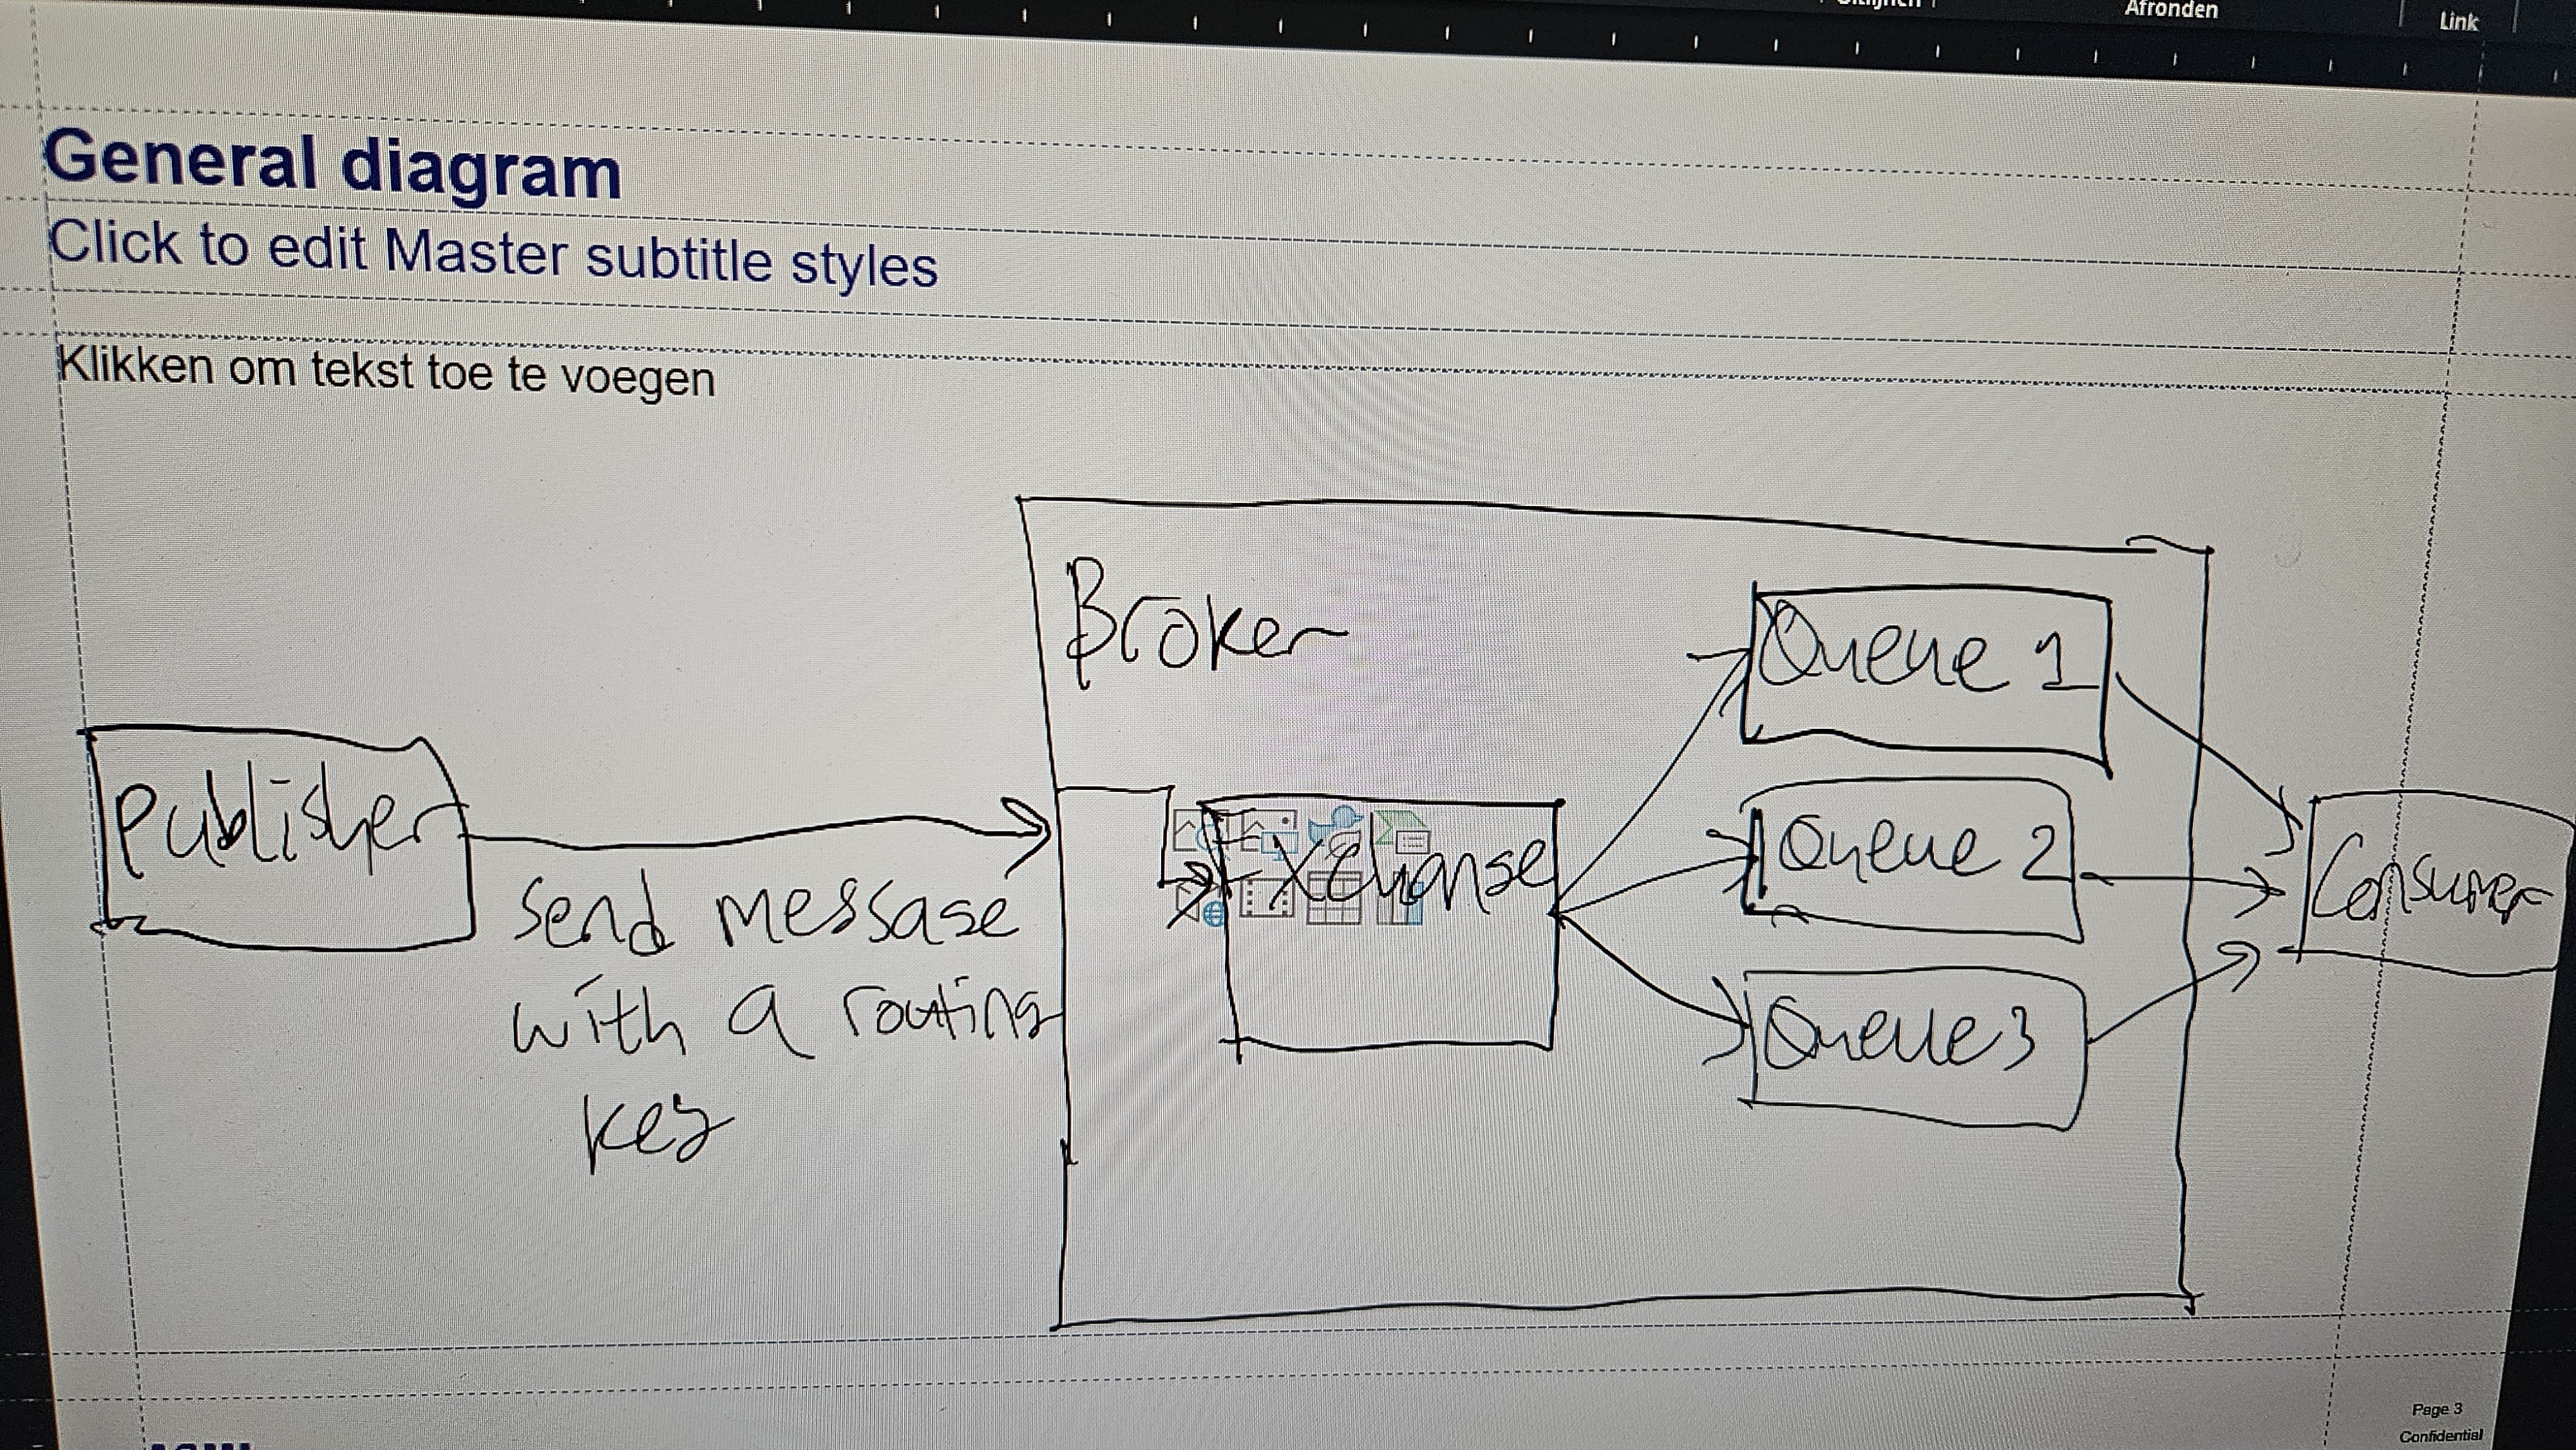 Afronden
Link
General diagram
Click to edit Master subtitle styles
Klikken om tekst toe te voegen
Broker
Publisher
send message
with a routing
key
Exchange
Queue 1
Queue 2
Queue 3
Consumer
Page 3
Confidential